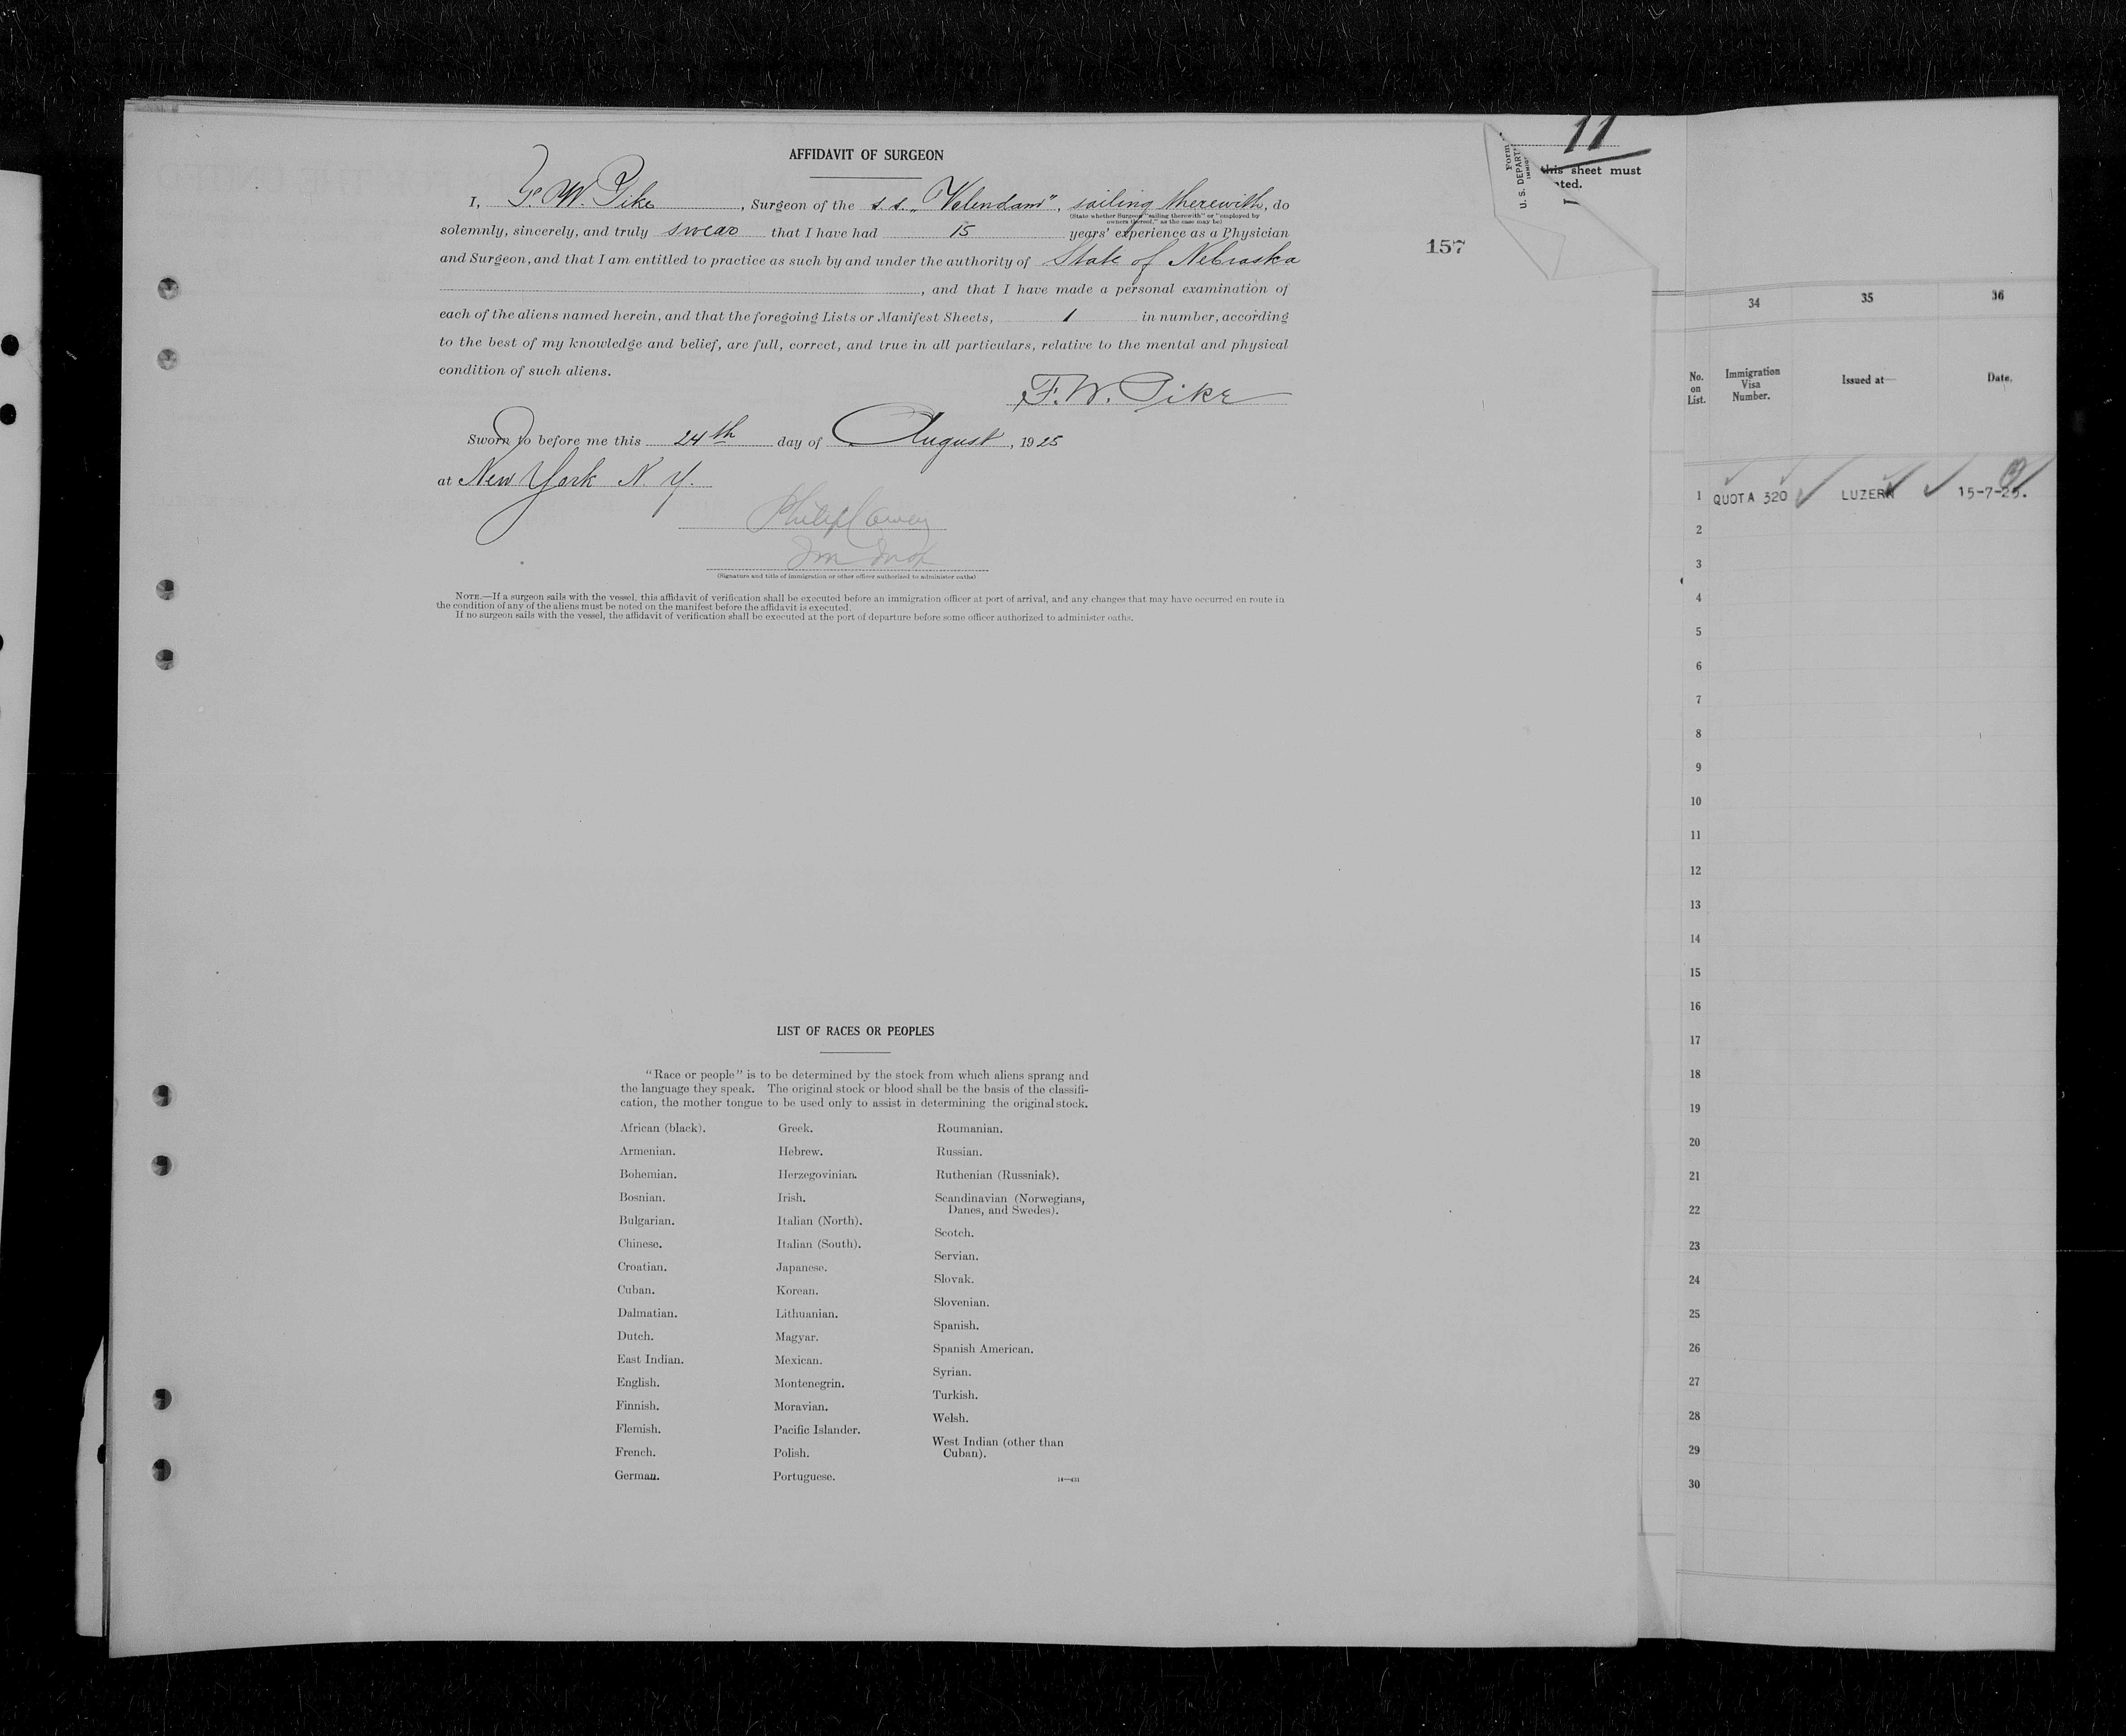 AFFIDAVIT OF SURGEON
I, F. W. Pike, Surgeon of the s.s. „Volendam", sailing therewith, do
(State whether Surgeon "sailing therewith" or "employed by
owners thereof," as the case may be)
solemnly, sincerely, and truly swear that I have had 15 years' experience as a Physician
and Surgeon, and that I am entitled to practice as such by and under the authority of State of Nebraska
, and that I have made a personal examination of
each of the aliens named herein, and that the foregoing Lists or Manifest Sheets, 1 in number, according
to the best of my knowledge and belief, are full, correct, and true in all particulars, relative to the mental and physical
condition of such aliens.
F. W. Pike
Sworn to before me this 24th day of August, 1925
at New York N. Y.
(Signature and title of immigration or other officer authorized to administer oaths)
NOTE.—If a surgeon sails with the vessel, this affidavit of verification shall be executed before an immigration officer at port of arrival, and any changes that may have occurred en route in
the condition of any of the aliens must be noted on the manifest before the affidavit is executed.
If no surgeon sails with the vessel, the affidavit of verification shall be executed at the port of departure before some officer authorized to administer oaths.
157
11
Form
U. S. DEPART
this sheet must
LIST OF RACES OR PEOPLES
"Race or people" is to be determined by the stock from which aliens sprang and
the language they speak. The original stock or blood shall be the basis of the classifi-
cation, the mother tongue to be used only to assist in determining the original stock.
African (black).
Armenian.
Bohemian.
Bosnian.
Bulgarian.
Chinese.
Croatian.
Cuban.
Dalmatian.
Dutch.
East Indian.
English.
Finnish.
Flemish.
French.
German.
Greek.
Hebrew.
Herzegovinian.
Irish.
Italian (North).
Italian (South).
Japanese.
Korean.
Lithuanian.
Magyar.
Mexican.
Montenegrin.
Moravian.
Pacific Islander.
Polish.
Portuguese.
Roumanian.
Russian.
Ruthenian (Russniak).
Scandinavian (Norwegians,
Danes, and Swedes).
Scotch.
Servian.
Slovak.
Slovenian.
Spanish.
Spanish American.
Syrian.
Turkish.
Welsh.
West Indian (other than
Cuban).
34 35 36
No.
on
List.
Immigration
Visa
Number.
Issued at—
Date.
1 QUOTA 320 LUZERN 15-7-25.
2
3
4
5
6
7
8
9
10
11
12
13
14
15
16
17
18
19
20
21
22
23
24
25
26
27
28
29
30